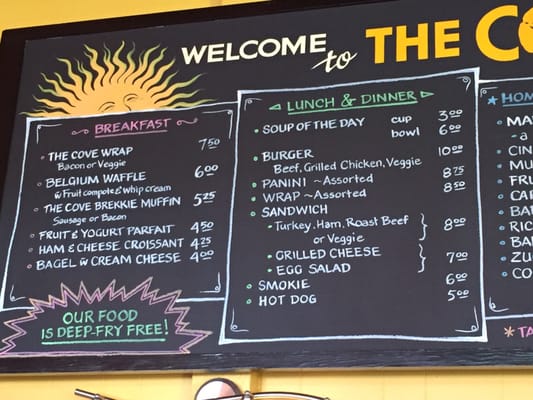 WELCOME to THE CO
BREAKFAST
THE COVE WRAP 7.50
Bacon or Veggie
BELGIUM WAFFLE 6.00
w Fruit compote & Whip cream
THE COVE BREKKIE MUFFIN 5.25
Sausage or Bacon
FRUIT & YOGURT PARFAIT 4.50
HAM & CHEESE CROISSANT 4.25
BAGEL w CREAM CHEESE 4.00
OUR FOOD
IS DEEP-FRY FREE!
LUNCH & DINNER
SOUP OF THE DAY cup 3.00
bowl 6.00
BURGER 10.00
Beef, Grilled Chicken, Veggie
PANINI ~ Assorted 8.75
WRAP ~ Assorted 8.50
SANDWICH
Turkey, Ham, Roast Beef
or Veggie 8.00
GRILLED CHEESE 7.00
EGG SALAD
SMOKIE 6.00
HOT DOG 5.00
HOM
MA
-a
CIN
MU
FRU
CAR
BA
RIC
BA
ZU
CO
TA